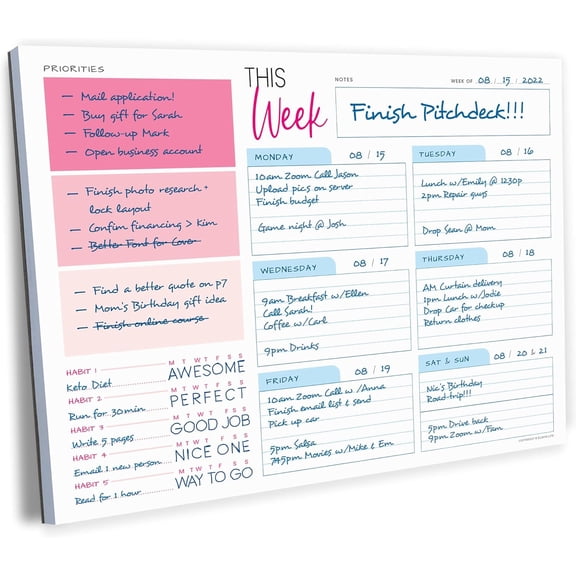 PRIORITIES
— Mail application!
— Buy gift for Sarah
— Follow-up Mark
— Open business account
— Finish photo research +
lock layout
— Confim financing > Kim
— Better Font for Cover
— Find a better quote on p7
— Mom's Birthday gift idea
— Finish online course
HABIT 1 M T W T F S S
Keto Diet AWESOME
HABIT 2 M T W T F S S
Run for 30min. PERFECT
HABIT 3 M T W T F S S
Write 5 pages GOOD JOB
HABIT 4 M T W T F S S
Email 1 new person NICE ONE
HABIT 5 M T W T F S S
Read for 1 hour WAY TO GO
THIS
Week
NOTES
WEEK OF 08 / 15 / 2022
Finish Pitchdeck!!!
MONDAY 08 / 15
10am Zoom Call Jason
Upload pics on server
Finish budget
Game night @ Josh
TUESDAY 08 / 16
Lunch w/Emily @ 1230p
2pm Repair guys
Drop Sean @ Mom
WEDNESDAY 08 / 17
9am Breakfast w/Ellen
Call Sarah!
Coffee w/Carl
9pm Drinks
THURSDAY 08 / 18
AM Curtain delivery
1pm Lunch w/Jodie
Drop Car for checkup
Return clothes
FRIDAY 08 / 19
10am Zoom Call w /Anna
Finish email list & send
Pick up car
5pm Salsa
745pm Movies w/Mike & Em
SAT & SUN 08 / 20 & 21
Nic's Birthday
Road-trip!!!
5pm Drive back
9pm Zoom w/Fam